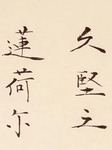 久堅之
蓮荷尓